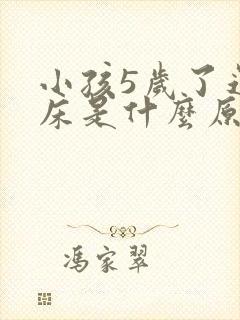 小孩5歲了
床是什麼原
馮家翠